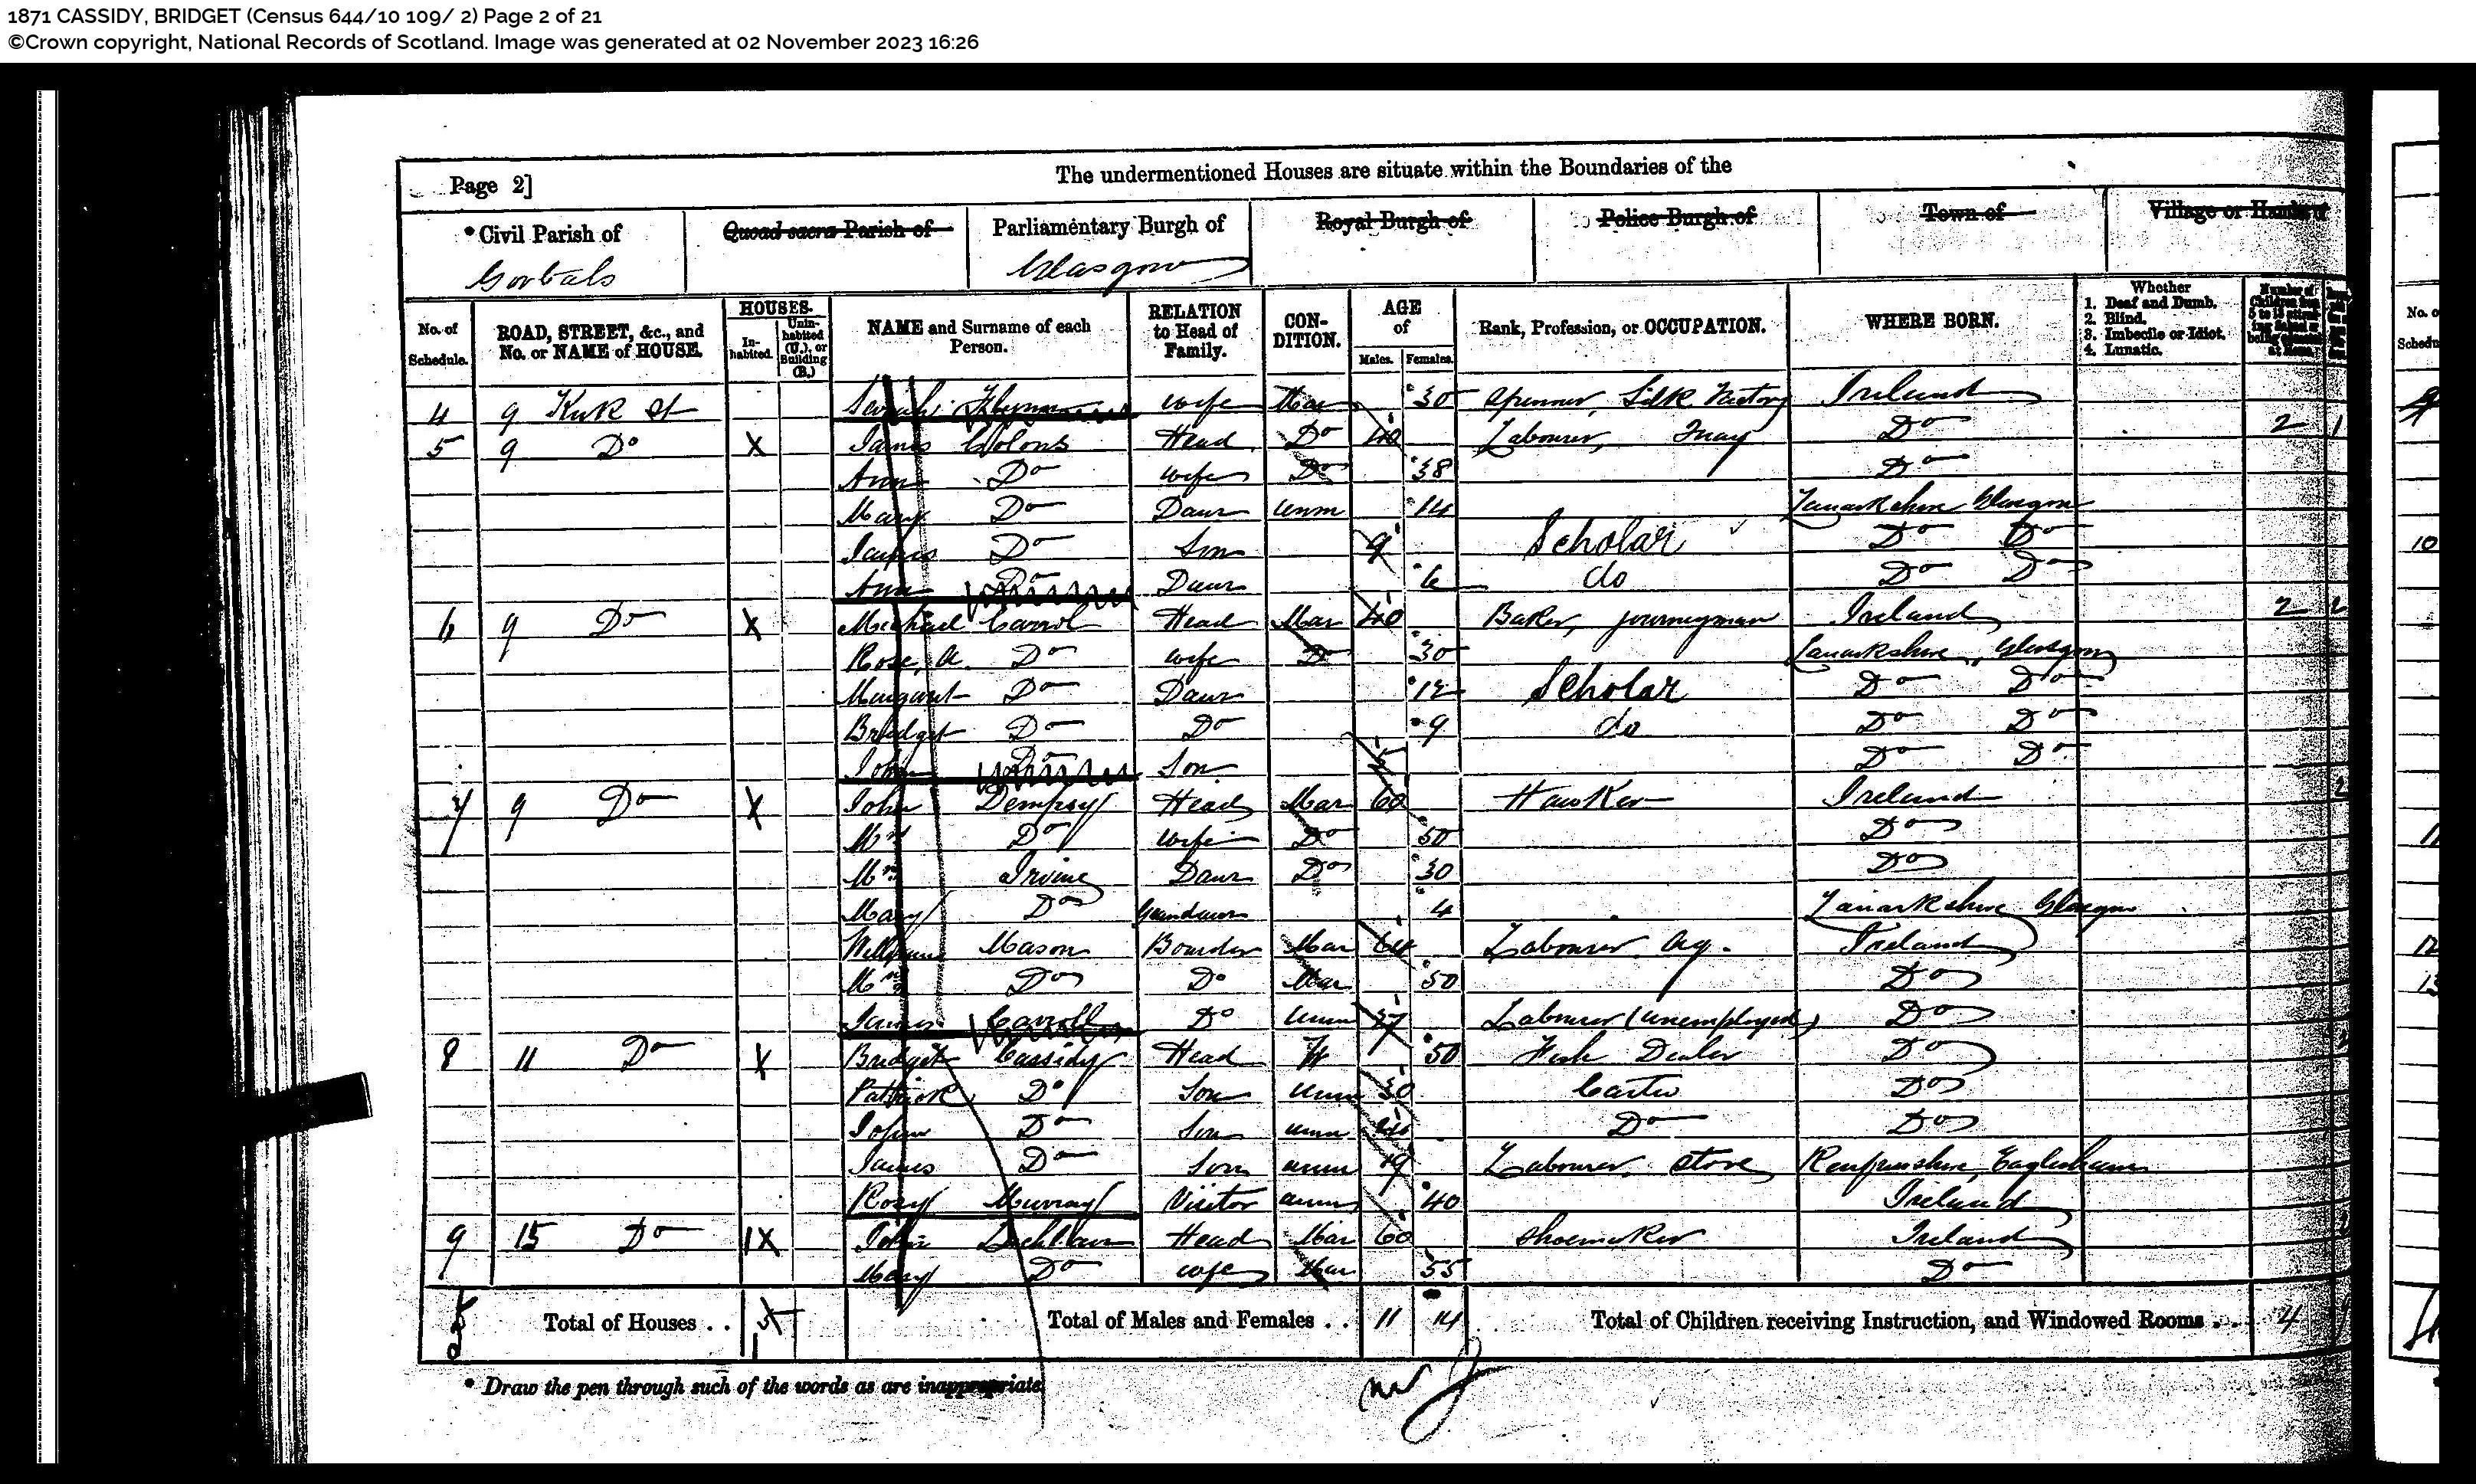 1871 CASSIDY, BRIDGET (Census 644/10 109/ 2) Page 2 of 21
©Crown copyright, National Records of Scotland. Image was generated at 02 November 2023 16:26
Page 2] The undermentioned Houses are situate within the Boundaries of the
*Civil Parish of Quoad sacra Parish of Parliamentary Burgh of Royal Burgh of Police Burgh of Town of Village or Hamlet of
Gorbals Glasgow
No. of Schedule. ROAD, STREET, &c., and No. or NAME of HOUSE. HOUSES. Inhabited. Uninhabited (U.), or Building (B.) NAME and Surname of each Person. RELATION to Head of Family. CONDITION. AGE of Males. Females. Rank, Profession, or OCCUPATION. WHERE BORN. Whether 1. Deaf and Dumb. 2. Blind. 3. Imbecile or Idiot. 4. Lunatic. Number of Children from 5 to 13 attending School or being educated at Home. No. of Schedu
4 9 Kirk St Sarah wife Mar 30 Spinner, Silk Factory Ireland
5 9 Do X James Head Do 40 Labourer, Do 2 1
Ann Do wife Do 38 Do
Mary Do Daur unm 14 Lanarkshire Glasgow
James Do Son 9 Scholar Do Do
Ann Do Daur 6 do Do Do
6 9 Do X Michael Carrol Head Mar 40 Baker, journeyman Ireland 2 2
Rose, A. Do wife Do 30 Lanarkshire, Glasgow
Margaret Do Daur 12 Scholar Do Do
Bridget Do Do 9 do Do Do
John Do Son Do Do
7 9 Do X John Dempsy Head Mar 60 Hawker Ireland 2
Mrs Do wife Do 50 Do
Mrs Irvine Daur Do 30 Do
Mary Do Grandaur 4 Lanarkshire Glasgow
William Mason Boarder Mar 64 Labourer Ag. Ireland
Mrs Do Do Mar 50 Do
James Carroll Do unm 37 Labourer (unemployed) Do
8 11 Do X Bridget Cassidy Head W 50 Fish Dealer Do
Patrick Do Son unm 30 Carter Do
John Do Son unm Do Do
James Do Son unm 19 Labourer Store Renfrewshire, Eaglesham
Rosy Murray Visitor unm 40 Ireland
9 15 Do 1X John Head Mar 60 Shoemaker Ireland
Mary Do wife Mar 55 Do
Total of Houses . . 5 Total of Males and Females . . 11 14 Total of Children receiving Instruction, and Windowed Rooms . . 4
* Draw the pen through such of the words as are inappropriate